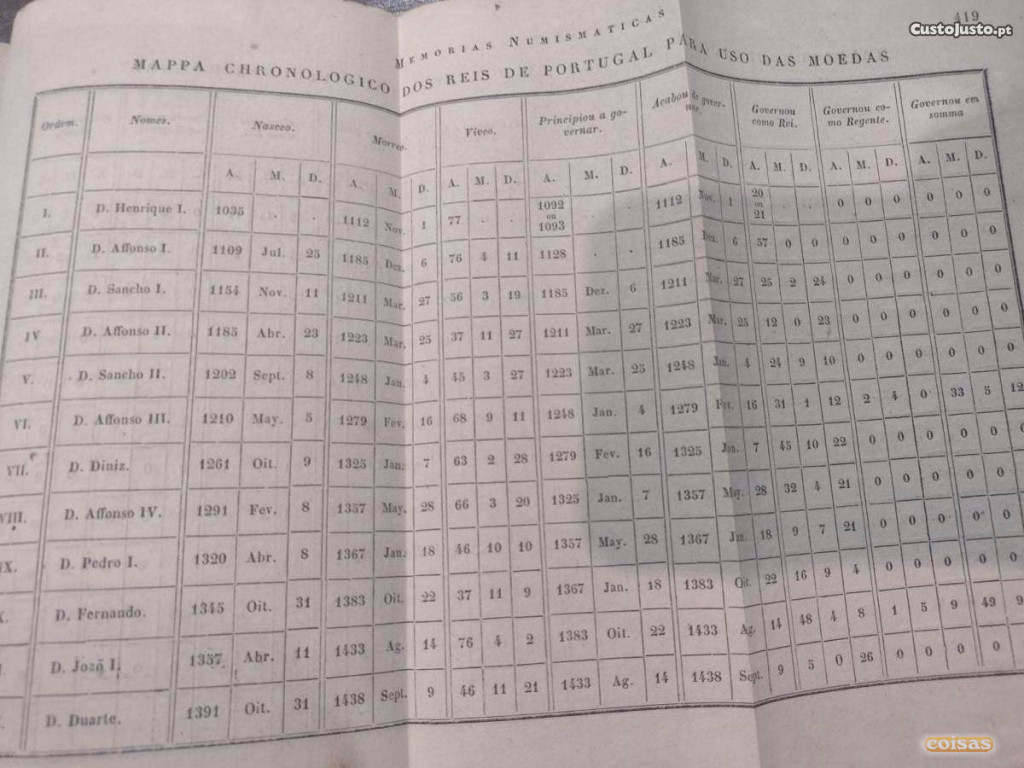 419
CustoJusto.pt
MEMORIAS NUMISMATICAS
MAPPA CHRONOLOGICO DOS REIS DE PORTUGAL PARA USO DAS MOEDAS
Ordem. Nomes. Nasceo. Morreo. Viveo. Principiou a governar. Acabou de governar. Governou como Rei. Governou como Regente. Governou em somma
A. M. D. A. M. D. A. M. D. A. M. D. A. M. D. A. M. D. A. M. D. A. M. D.
I. D. Henrique I. 1035 . . 1112 Nov. 1 77 . . 1092 ou 1093 . . 1112 Nov. 1 20 ou 21 . . 0 0 0 0 0 0
II. D. Affonso I. 1109 Jul. 25 1185 Dez. 6 76 4 11 1128 . . 1185 Dez. 6 57 0 0 0 0 0 0 0 0
III. D. Sancho I. 1154 Nov. 11 1211 Mar. 27 56 3 19 1185 Dez. 6 1211 Mar. 27 25 2 24 0 0 0 0 0 0
IV D. Affonso II. 1185 Abr. 23 1223 Mar. 25 37 11 27 1211 Mar. 27 1223 Mar. 25 12 0 23 0 0 0 0 0 0
V. D. Sancho II. 1202 Sept. 8 1248 Jan. 4 45 3 27 1223 Mar. 25 1248 Jan. 4 24 9 10 0 0 0 0 0 0
VI. D. Affonso III. 1210 May. 5 1279 Fev. 16 68 9 11 1248 Jan. 4 1279 Fev. 16 31 1 12 2 4 0 33 5 12
VII. D. Diniz. 1261 Oit. 9 1325 Jan. 7 63 2 28 1279 Fev. 16 1325 Jan. 7 45 10 22 0 0 0 0 0 0
VIII. D. Affonso IV. 1291 Fev. 8 1357 May. 28 66 3 20 1325 Jan. 7 1357 May. 28 32 4 21 0 0 0 0 0 0
IX. D. Pedro I. 1320 Abr. 8 1367 Jan. 18 46 10 10 1357 May. 28 1367 Jan. 18 9 7 21 0 0 0 0 0 0
X. D. Fernando. 1345 Oit. 31 1383 Oit. 22 37 11 9 1367 Jan. 18 1383 Oit. 22 16 9 4 0 0 0 0 0 0
I. D. Joaõ I. 1357 Abr. 11 1433 Ag. 14 76 4 2 1383 Oit. 22 1433 Ag. 14 48 4 8 1 5 9 49 9
D. Duarte. 1391 Oit. 31 1438 Sept. 9 46 11 21 1433 Ag. 14 1438 Sept. 9 5 0 26 0 0 0 0 0
coisas